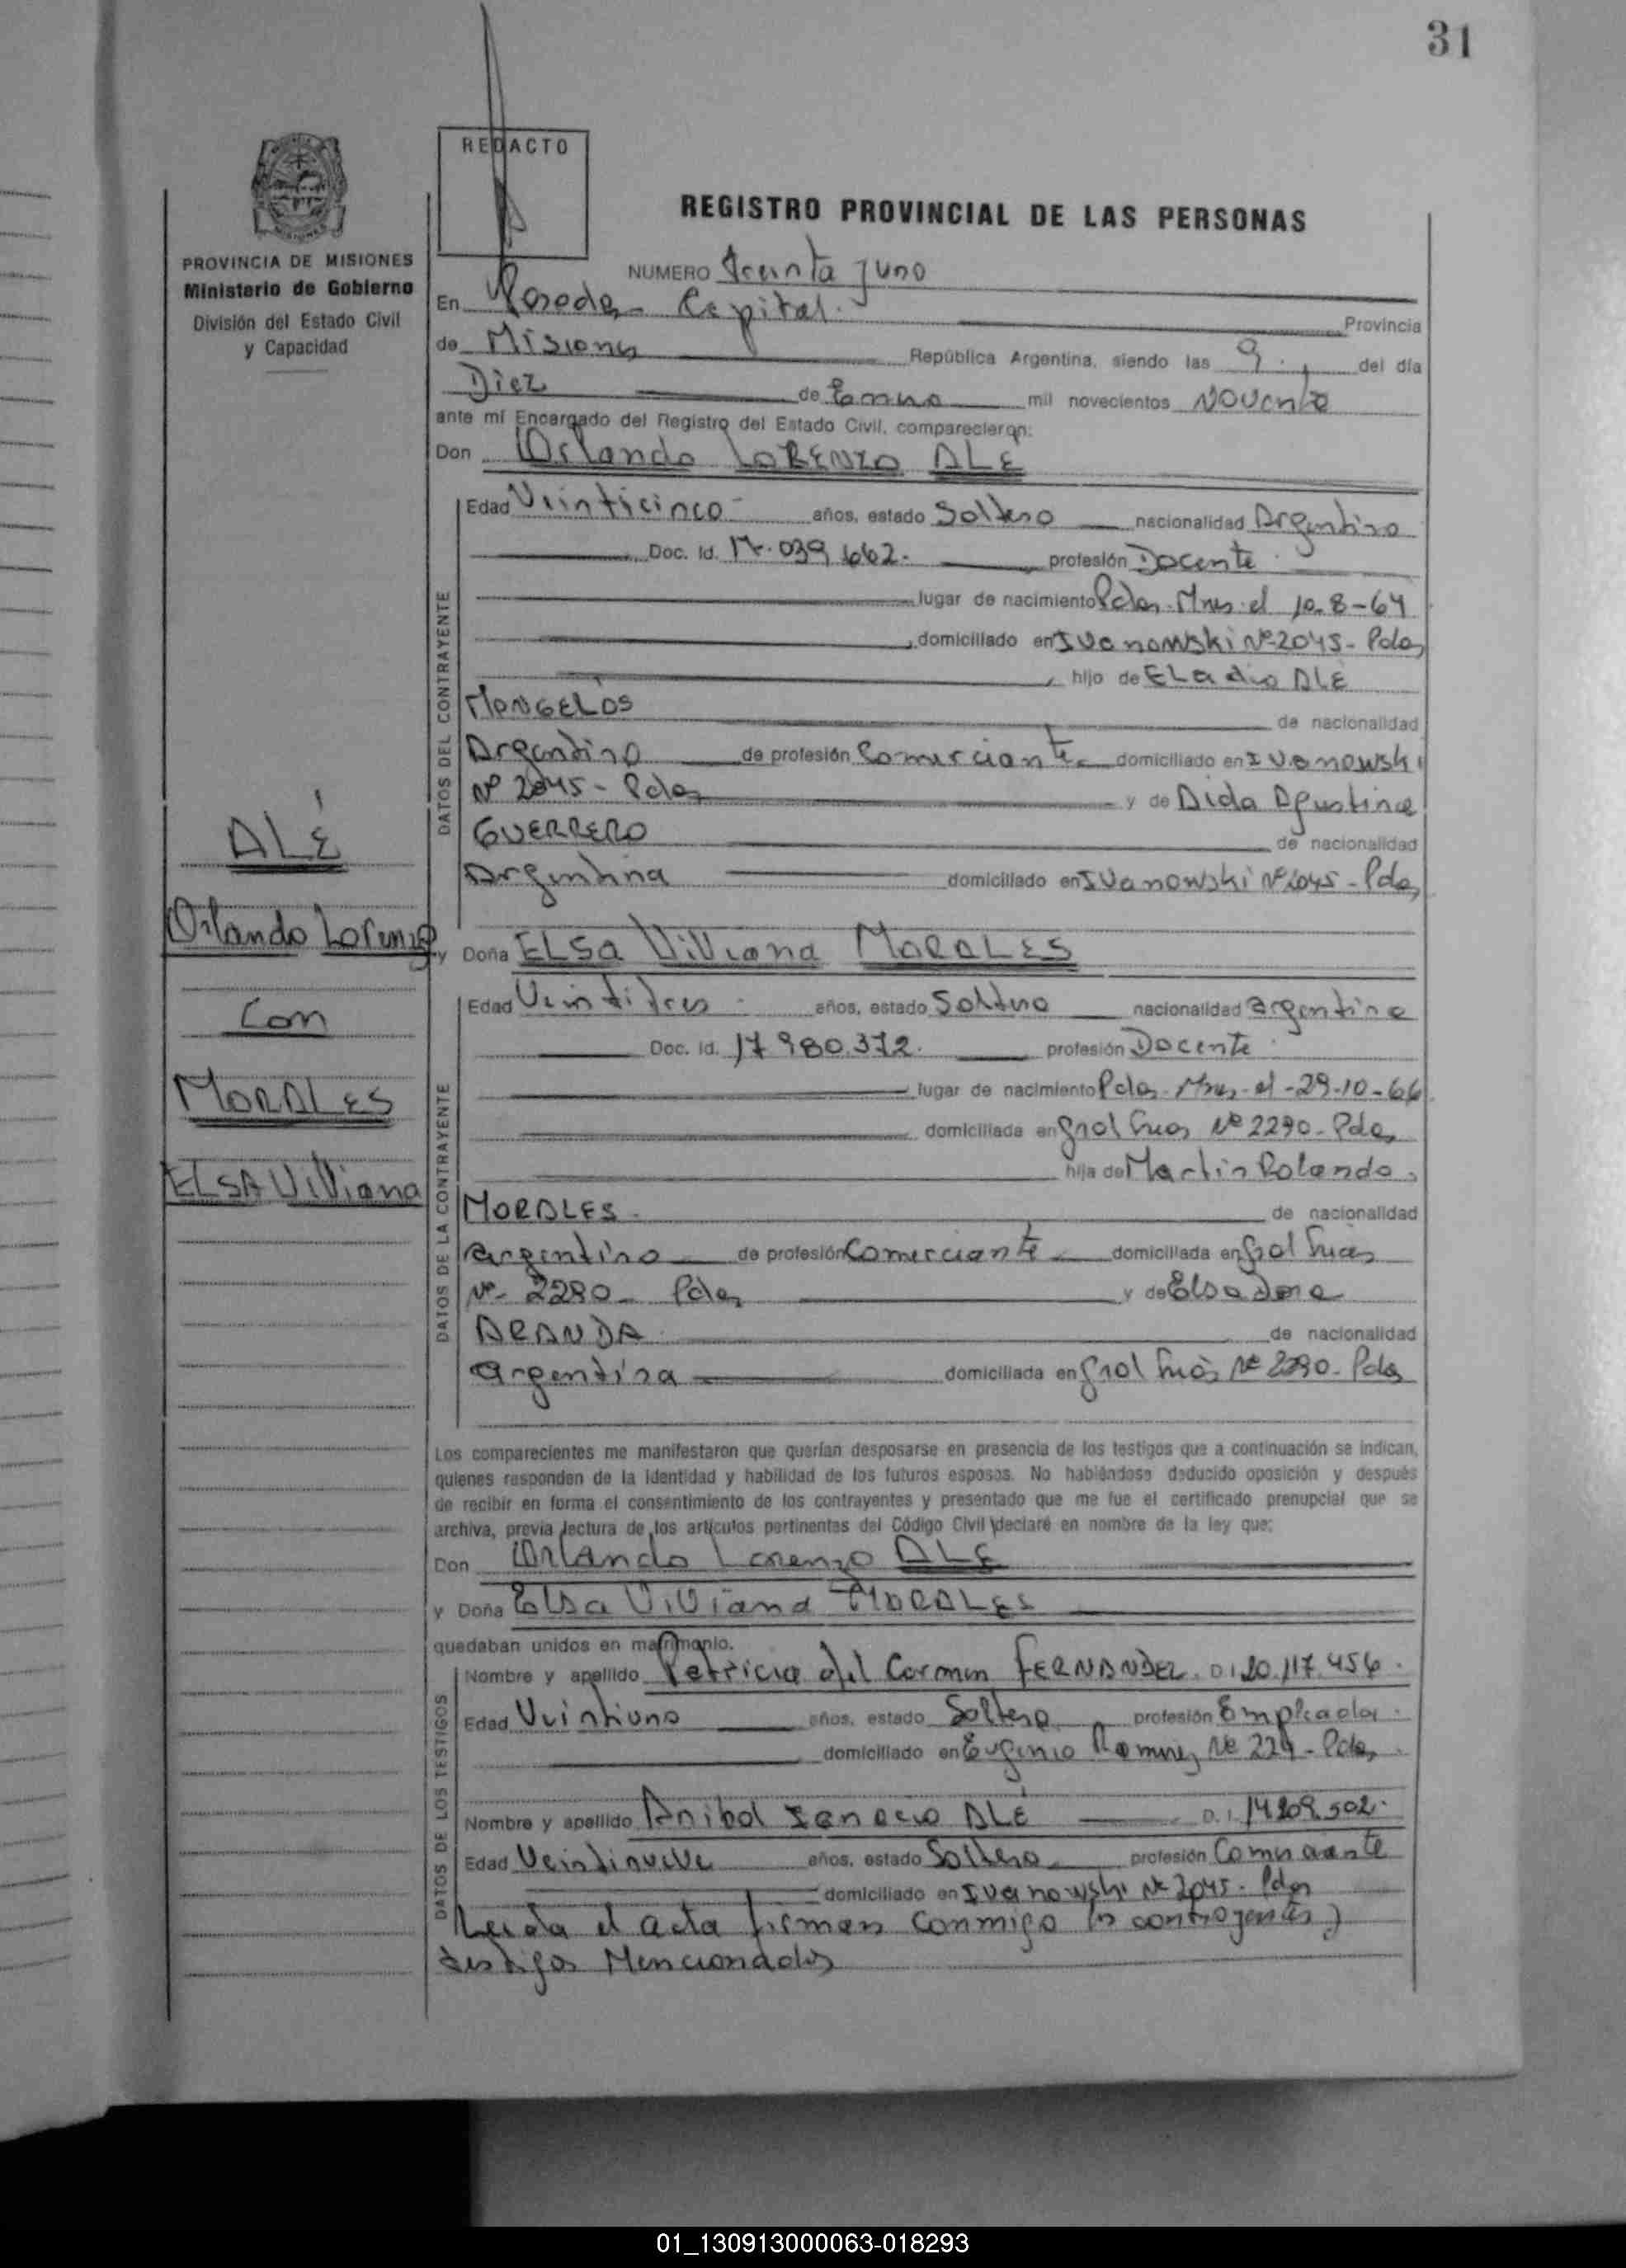 31
REDACTO
REGISTRO PROVINCIAL DE LAS PERSONAS
PROVINCIA DE MISIONES
Ministerio de Gobierno
División del Estado Civil
y Capacidad
NUMERO Treinta y uno
En Posadas Capital. Provincia
de Misiones República Argentina, siendo las 9. del día
Diez de Enero mil novecientos Noventa
ante mí Encargado del Registro del Estado Civil, comparecieron:
Don Orlando LORENZO ALE
DATOS DEL CONTRAYENTE
Edad Veinticinco años, estado Soltero nacionalidad Argentino
Doc. Id. 17.039.662. profesión Docente
lugar de nacimiento Pdas. Mnes. el 10-8-64
domiciliado en Ivanowski Nº 2045 - Pdas
hijo de ELadio ALE
MONGELOS de nacionalidad
Argentino de profesión Comerciante domiciliado en Ivanowski
Nº 2045 - Pdas y de Aida Agustina
GUERRERO de nacionalidad
Argentina domiciliado en Ivanowski Nº 2045 - Pdas
ALÉ
Orlando Lorenzo
Con
MORALES
ELSA ViViana
y Doña ELSa ViViana MORALES
DATOS DE LA CONTRAYENTE
Edad Veintitres años, estado Soltera nacionalidad argentina
Doc. Id. 17.980.372. profesión Docente
lugar de nacimiento Pdas. Mnes. el -29-10-66
domiciliada en Nº 2290 - Pdas
hija de Martin Rolando
MORALES de nacionalidad
argentino de profesión Comerciante domiciliada en
Nº 2290 - Pdas y de Elsa Dora
ARANDA de nacionalidad
argentina domiciliada en Nº 2290 - Pdas
Los comparecientes me manifestaron que querían desposarse en presencia de los testigos que a continuación se indican,
quienes responden de la identidad y habilidad de los futuros esposos. No habiéndose deducido oposición y después
de recibir en forma el consentimiento de los contrayentes y presentado que me fue el certificado prenupcial que se
archiva, previa lectura de los artículos pertinentes del Código Civil declaré en nombre de la ley que:
Don Orlando Lorenzo ALE
y Doña Elsa ViViana MORALES
quedaban unidos en matrimonio.
DATOS DE LOS TESTIGOS
Nombre y apellido Patricia del Carmen FERNANDEZ D.I. 20.117.456.
Edad Veintiuno años, estado Soltera profesión Empleada
domiciliado en Eugenio Ramirez Nº 224 - Pdas
Nombre y apellido Anibal Ignacio ALÉ D.I. 14.209.502.
Edad Veintinueve años, estado Soltero profesión Comerciante
domiciliado en Ivanowski Nº 2045 - Pdas
Leida el acta firman conmigo los contrayentes y
testigos Mencionados
01_130913000063-018293